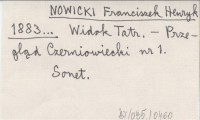 NOWICKI Franciszek Henryk
1883... Widok Tatr. - Prze-
gląd Czerniowiecki nr 1.
Sonet.